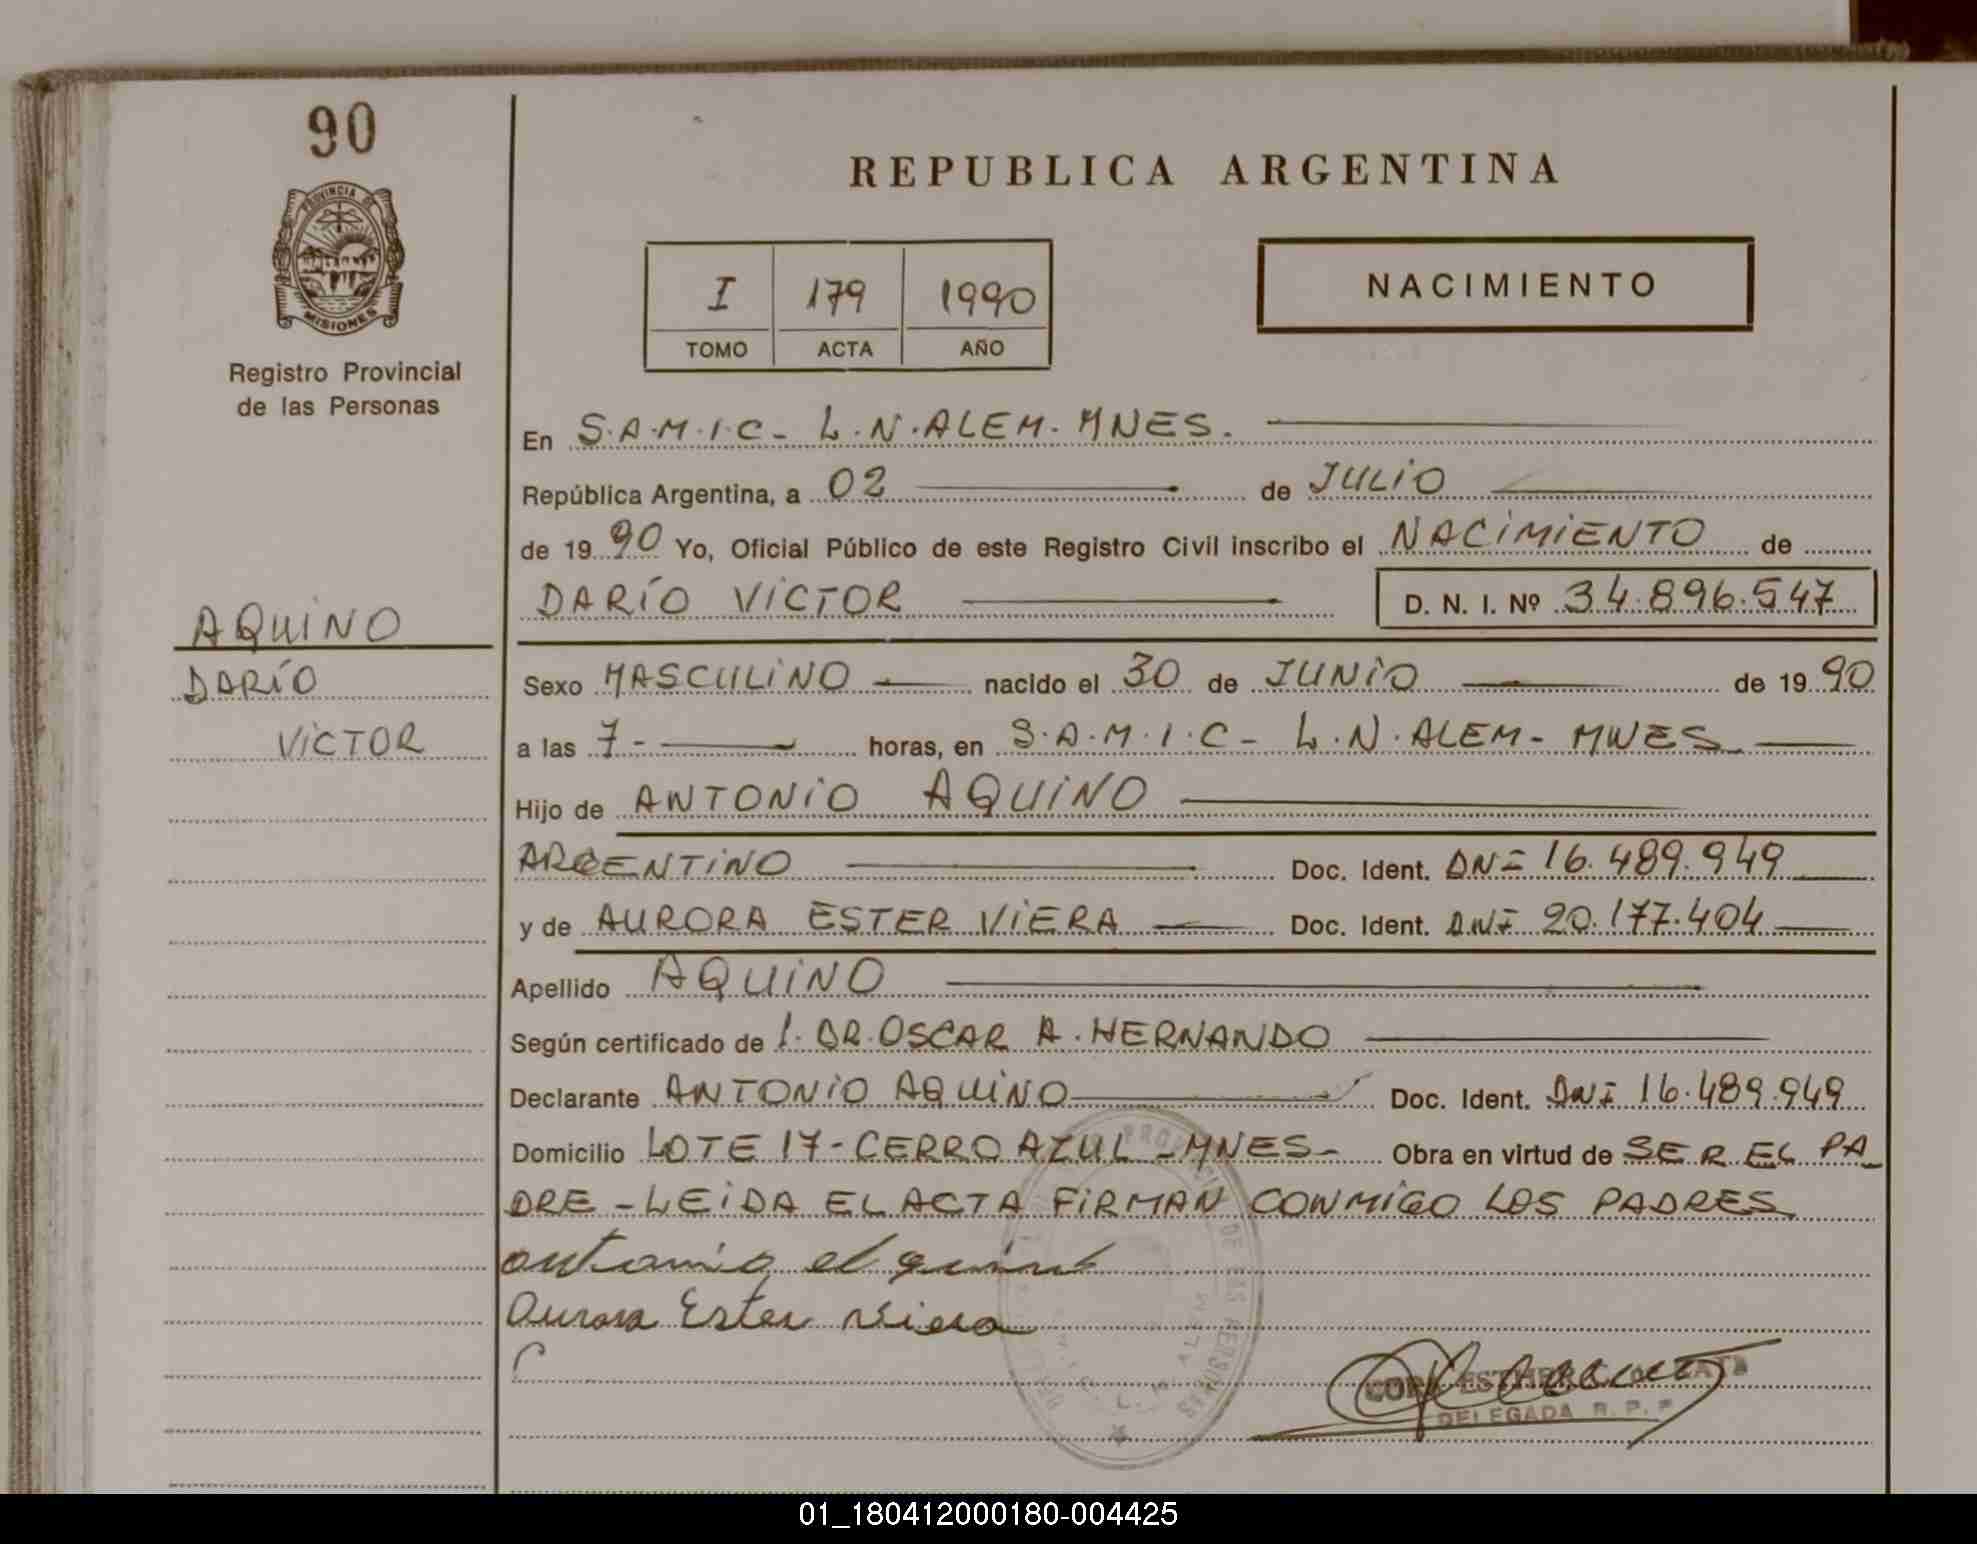 90
PROVINCIA DE
MISIONES
Registro Provincial
de las Personas
AQUINO
DARÍO
VICTOR
REPUBLICA ARGENTINA
I 179 1990
TOMO ACTA AÑO
NACIMIENTO
En S.A.M.I.C- L.N.ALEM. MNES.
República Argentina, a 02 de JULIO
de 19 90 Yo, Oficial Público de este Registro Civil inscribo el NACIMIENTO de
DARÍO VICTOR D. N. I. Nº 34.896.547
Sexo MASCULINO nacido el 30 de JUNIO de 19 90
a las 7- horas, en S.A.M.I.C- L.N.ALEM- MNES
Hijo de ANTONIO AQUINO
ARGENTINO Doc. Ident. DNI 16.489.949
y de AURORA ESTER VIERA Doc. Ident. DNI 20.177.404
Apellido AQUINO
Según certificado de l. DR.OSCAR A. HERNANDO
Declarante ANTONIO AQUINO Doc. Ident. DNI 16.489.949
Domicilio LOTE 17-CERRO AZUL-MNES- Obra en virtud de SER EL PA_
DRE-LEIDA EL ACTA FIRMAN CONMIGO LOS PADRES
Aurora Ester Viera
DELEGADA R. P. P
01_180412000180-004425